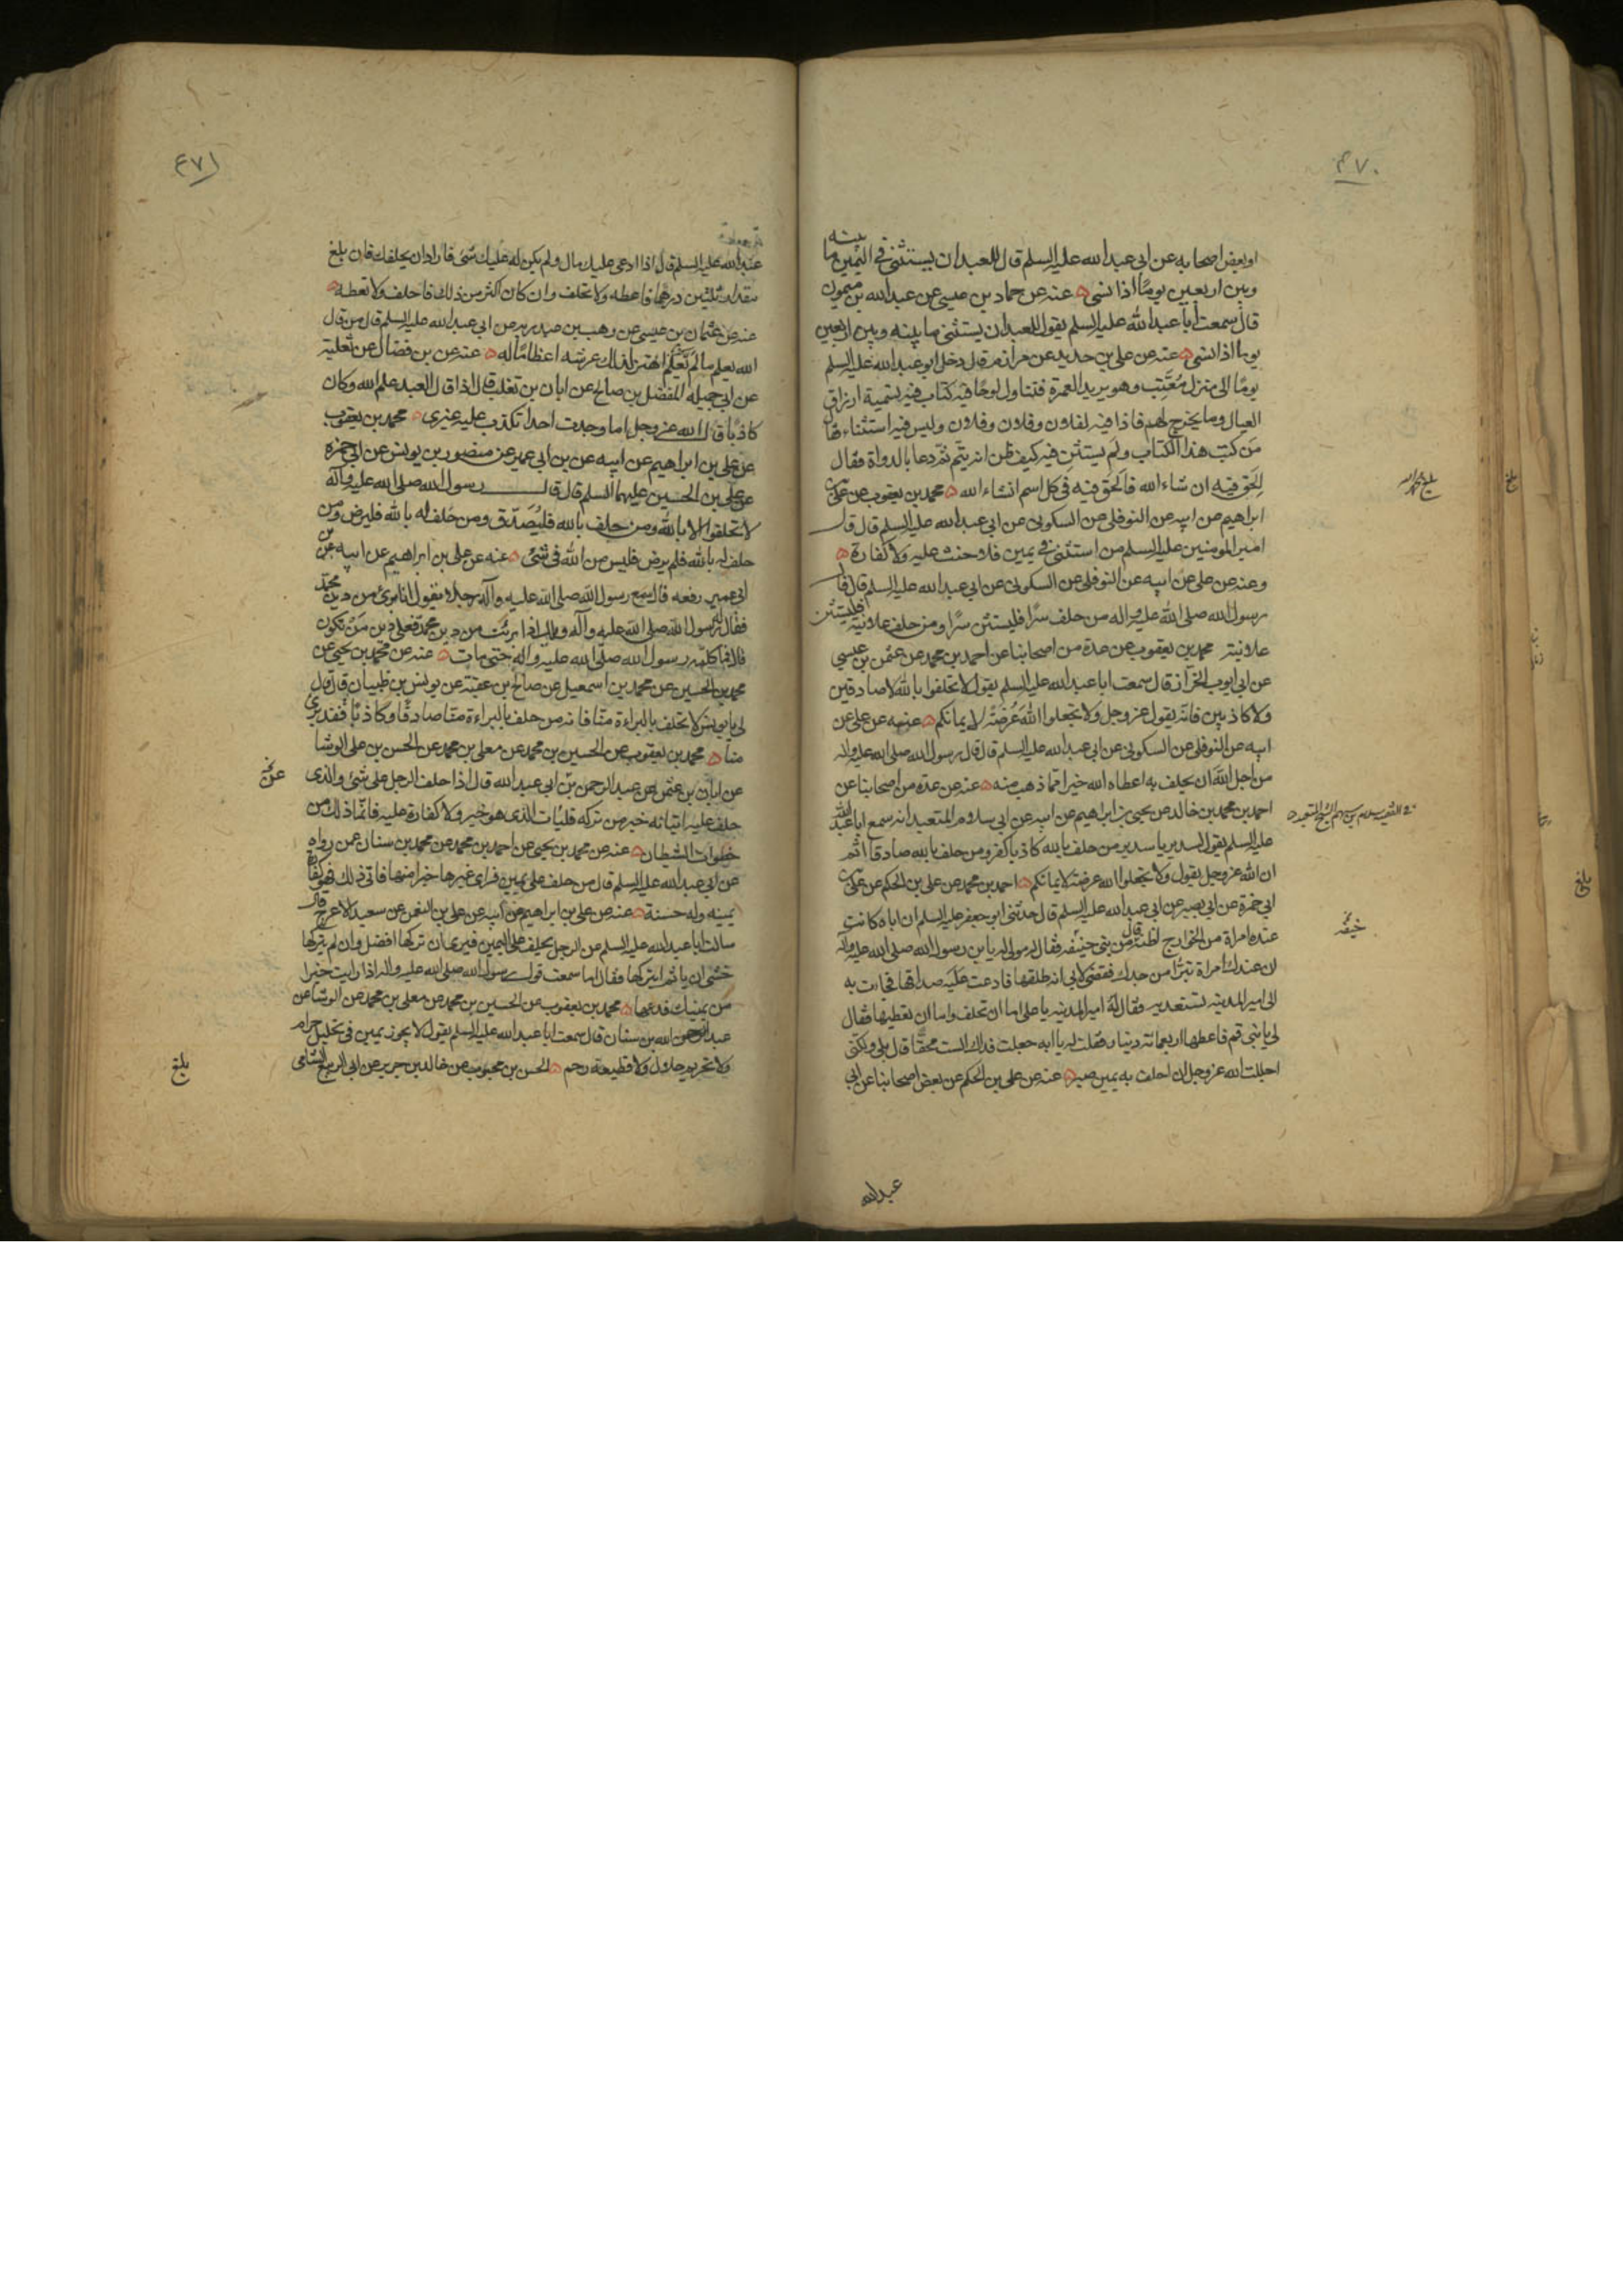 ٤٧٠
او بعض اصحابه عن ابي عبد الله عليه السلم قال للعبد ان يستثني في اليمين ما بينه
وبين اربعين يوما اذا نسي عنه عن حماد بن عيسى عن عبد الله بن ميمون
قال سمعت ابا عبد الله عليه السلم يقول للعبد ان يستثني ما بينه وبين اربعين
يوما اذا نسي عنه عن علي بن حديد عن مرازم قال دخل ابو عبد الله عليه السلم
يوما الى منزل معتب وهو يريد العمرة فتناول لوحا فيه كتاب فيه تسمية ارزاق
العيال وما يخرج لهم فاذا فيه لفلان وفلان وفلان وليس فيه استثناء فقال
من كتب هذا الكتاب ولم يستثن فيه كيف ظن انه يتم ثم دعا بالدواة فقال
الحق فيه ان شاء الله فالحق فيه في كل اسم انشاء الله محمد بن يعقوب عن علي بن
ابراهيم عن ابيه عن النوفلي عن السكوني عن ابي عبد الله عليه السلم قال قال
امير المومنين عليه السلم من استثنى في يمين فلا حنث عليه ولا كفارة
وعنه عن علي عن ابيه عن النوفلي عن السكوني عن ابي عبد الله عليه السلم قال قال
رسول الله صلى الله عليه واله من حلف سرا فليستثن سرا ومن حلف علانية فليستثن
علانية محمد بن يعقوب عن عدة من اصحابنا عن احمد بن محمد عن عثمن بن عيسى
عن ابي ايوب الخزاز قال سمعت ابا عبد الله عليه السلم يقول لا تحلفوا بالله لا صادقين
ولا كاذبين فانه يقول عز وجل ولا تجعلوا الله عُرْضَةً لايمانكم عنه عن علي عن
ابيه عن النوفلي عن السكوني عن ابي عبد الله عليه السلم قال قال رسول الله صلى الله عليه واله
من اجل الله ان يحلف به اعطاه الله خيرا مما ذهب منه عنه عن عدة من اصحابنا عن
احمد بن محمد بن خالد عن يحيى بن ابراهيم عن ابيه عن ابي سلام المتعبد انه سمع ابا عبد الله
عليه السلم يقول لسدير يا سدير من حلف بالله كاذبا كفر ومن حلف بالله صادقا اثم
ان الله عز وجل يقول ولا تجعلوا الله عرضة لايمانكم احمد بن محمد عن علي بن الحكم عن علي بن
ابي حمزة عن ابي بصير عن ابي عبد الله عليه السلم قال حدثني ابو جعفر عليه السلم ان اباه كانت
عنده امراة من الخوارج اظنه قال من بني حنيفه فقال له مولى له يا بن رسول الله صلى الله عليه واله
ان عندك امراة تبرأ من جدك فقضي لابي انه طلقها فادعت عليه صداقها فجاءت به
الى امير المدينة تستعديه فقال له امير المدينة يا علي اما ان تحلف واما ان تعطيها فقال
لي يا بني قم فاعطها اربعمائة دينار فقلت له يا ابه جعلت فداك الست محقا قال بلى ولكني
اجللت الله عز وجل ان احلف به يمين صبر عنه عن علي بن الحكم عن بعض اصحابنا عن ابي
عبد الله
٤٧١
عبد الله عليه السلم قال اذا ادعي عليك مال ولم يكن له عليك شئ فاراد ان يحلفك فان بلغ
مقدار ثلثين درهما فاعطه ولا تحلف وان كان اكثر من ذلك فاحلف ولا تعطه
عنه عن عثمان بن عيسى عن وهب بن عبد ربه عن ابي عبد الله عليه السلم قال من قال
الله يعلم ما لم يعلم اهتز لذلك عرشه اعظاما له عنه عن بن فضال عن ثعلبة
عن ابي جميلة المفضل بن صالح عن ابان بن تغلب قال اذا قال العبد علم الله وكان
كاذبا قال الله عز وجل اما وجدت احدا تكذب عليه غيري محمد بن يعقوب
عن علي بن ابراهيم عن ابيه عن بن ابي عمير عن منصور بن يونس عن ابي حمزة
عن علي بن الحسين عليهما السلم قال قال رسول الله صلى الله عليه وآله
لا تحلفوا الا بالله ومن حلف بالله فليُصَدّق ومن حُلف له بالله فليرض ومن
حلف له بالله فلم يرض فليس من الله في شئ عنه عن علي بن ابراهيم عن ابيه عن بن
ابي عمير رفعه قال سمع رسول الله صلى الله عليه وآله رجلا يقول انا برئ من دين محمد
فقال له رسول الله صلى الله عليه وآله ويلك اذا برئت من دين محمد فعلى دين مَنْ تكون
قال فما كلمه رسول الله صلى الله عليه واله حتى مات عنه عن محمد بن يحيى عن
محمد بن الحسين عن محمد بن اسمعيل عن صالح بن عقبة عن يونس بن ظبيان قال قال
لي يا يونس لا تحلف بالبراءة منا فانه من حلف بالبراءة منا صادقا او كاذبا فقد برئ
منا محمد بن يعقوب عن الحسين بن محمد عن معلى بن محمد عن الحسن بن علي الوشا
عن ابان بن عثمن عن عبد الرحمن بن ابي عبد الله قال اذا حلف الرجل على شئ والذي
حلف عليه اتيانه خير من تركه فليات الذي هو خير ولا كفارة عليه فانما ذلك من
خطوات الشيطان عنه عن محمد بن يحيى عن احمد بن محمد عن محمد بن سنان عمن رواه
عن ابي عبد الله عليه السلم قال من حلف على يمين فراى غيرها خيرا منها فاتى ذلك فهو كفارة
يمينه وله حسنة عنه عن علي بن ابراهيم عن ابيه عن علي بن النعمن عن سعيد الاعرج قال
سالت ابا عبد الله عليه السلم عن الرجل يحلف على اليمين فيرى ان تركها افضل وان لم يتركها
خشي ان ياثم ايتركها فقال اما سمعت قول رسول الله صلى الله عليه واله اذا رايت خيرا
من يمينك فدعها محمد بن يعقوب عن الحسين بن محمد عن معلى بن محمد عن الوشا عن
عبد الله بن سنان قال سمعت ابا عبد الله عليه السلم يقول لا يجوز يمين في تحليل حرام
ولا تحريم حلال ولا قطيعة رحم الحسن بن محبوب عن خالد بن جرير عن ابي الربيع الشامي
بلغ